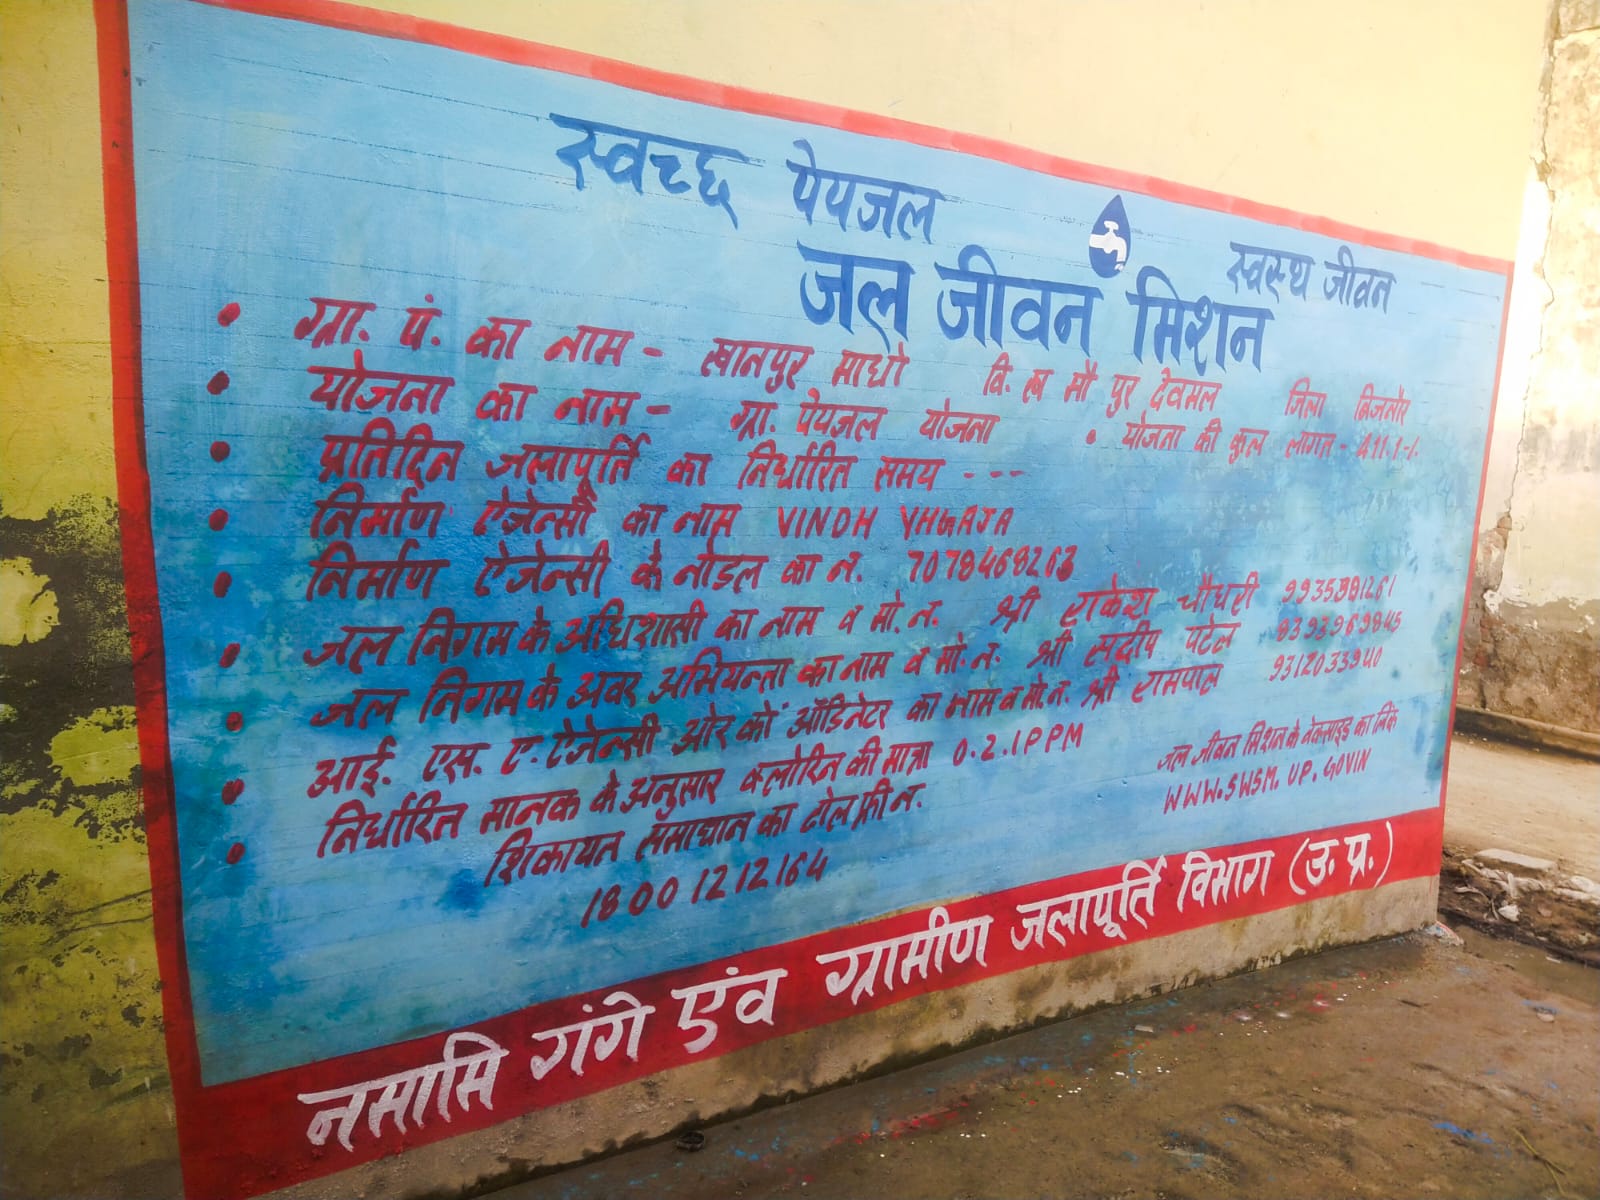 स्वच्छ पेयजल स्वस्थ जीवन
जल जीवन मिशन
• ग्रा. पं. का नाम - खानपुर माधो वि. ख मौ पुर देवमल जिला बिजनौर
• योजना का नाम - ग्रा. पेयजल योजना • योजना की कुल लागत -
• प्रतिदिन जलापूर्ति का निर्धारित समय ---
• निर्माण ऐजेन्सी का नाम VINDH YHGAJA
• निर्माण ऐजेन्सी के नोडल का न. 7078468263
• जल निगम के अधिशासी का नाम व मो. न. श्री राकेश चौधरी
• जल निगम के अवर अभियन्ता का नाम व मो. न. श्री सदीप पटेल 8393969845
• आई. एस. ए. ऐजेन्सी ओर को ऑडिनेटर का नाम व मो. न. श्री रामपाल 9312033940
• निर्धारित मानक के अनुसार क्लोरिन की मात्रा 0.2.1PPM
शिकायत समाधान का टोल फ्री न.
1800 1212164
जल जीवन मिशन के वेबसाइड का लिंक
WWW.SWSM.UP.GOVIN
नमामि गंगे एंव ग्रामीण जलापूर्ति विभाग (उ. प्र.)